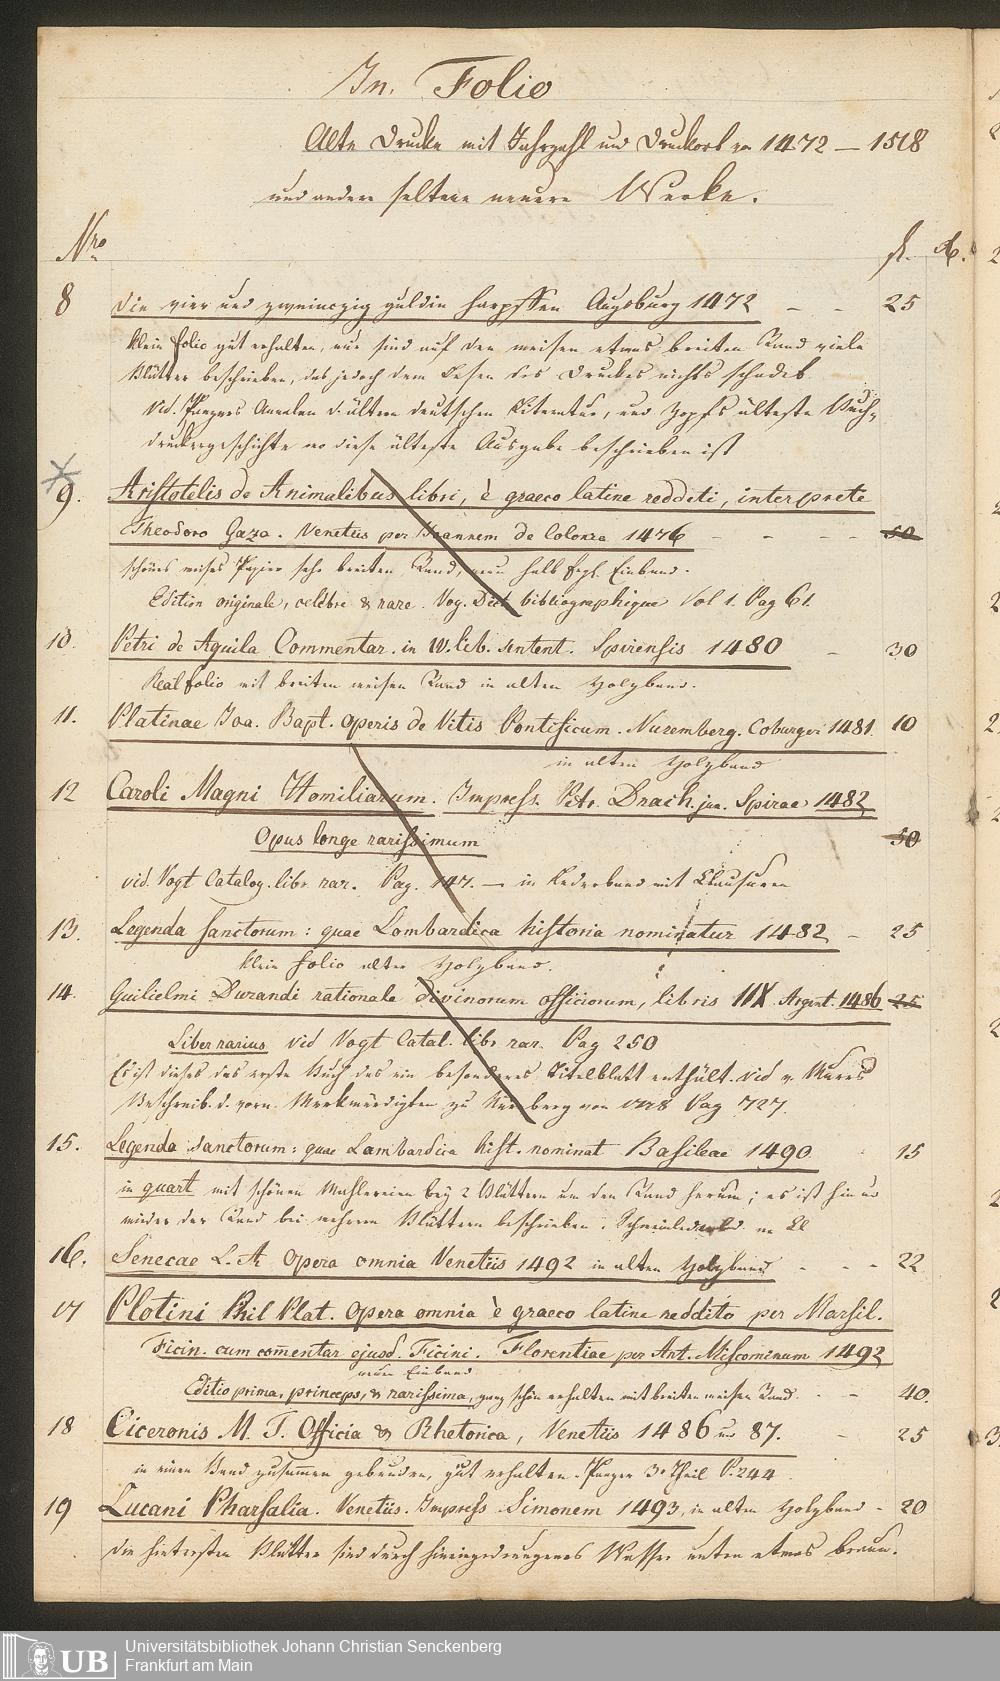 In. Folio
Alte Drucke mit Jahrzahl und Druckort von 1472 — 1518
und andere seltene neuere Werke.
Nro fl. x.
8 die vier und zweinczig guldin harpffen Augsburg 1472 - - 25
klein folio gut erhalten, nur sind auf den weisen etwas breiten Rand viele
Blätter beschrieben, das jedoch dem Lesen des Druckes nichts schadet
vid. Panzers Annalen d. ältern deutschen Literatur, und Zapfs älteste Buch-
druckergeschichte wo diese älteste Ausgabe beschrieben ist
9. Aristotelis de Animalibus libri, è graeco latine redditi, interprete
Theodoro Gaza. Venetiis per Joannem de Colonia 1476 - - - - 50
schönes weises Papier sehr breiten Rand, neuer halb frzh. Einband.
Edition originale, celébre & rare. Voy. Dict. bibliographique Vol 1. Pag 61.
10. Petri de Aquila Commentar. in IV. lib. sentent. Spirensis 1480 - 30
Real folio mit breiten weisen Rand in alten Holzband.
11. Platinae Joa. Bapt. operis de Vitis Pontificum. Nuremberg. Coburger 1481. 10
in alten Holzband
12 Caroli Magni Homiliarum. Impress. Petr. Drach jun. Spirae 1482
Opus longe rarissimum 50
vid. Vogt Catalog. libr. rar. Pag. 147. — in Lederband mit Clausuren
13. Legenda sanctorum: quae Lombardica historia nominatur 1482 - 25
klein folio alter Holzband.
14. Guilielmi Durandi rationale divinorum officiorum, libris IIX Argent. 1486 25
Liber rarius vid Vogt Catal. libr rar. Pag 250
Es ist dieses das erste Buch das ein besonderes Titelblatt enthält. vid v. Murrs
Beschreib. d. vorn. Merkwürdigkten zu Nürnberg von 1778 Pag 727.
15. Legenda sanctorum: quae Lambardica hist. nominat Basileae 1490 15
in quart mit schönen Mahlereien bey 2 Blättern um den Rand herum; es ist hin und
wieder der Rand bei mehrern Blättern beschrieben.
16. Senecae L. A. Opera omnia Venetiis 1492 in alten Holzband - - - 22
17 Plotini Phil Plat. Opera omnia è graeco latine reddito per Marsil.
Ficin. cum comentar ejusd. Ficini. Florentiae per Ant. Miscominum 1492
neuer Einband
Editio prima, princeps, & rarissima, ganz schön erhalten mit breiten weisen Rand - - 40.
18 Ciceronis M. T. Officia & Rhetorica, Venetiis 1486 und 87. - 25
in einen Band zusamen gebunden, gut erhalten. Panzer 3r Theil P. 244
19 Lucani Pharsalia. Venetiis. Impress Simonem 1493, in alten Holzband - 20
die hintersten Blätter sind durch hineingedrungenes Wasser unten etwas braun.
UB Universitätsbibliothek Johann Christian Senckenberg
Frankfurt am Main